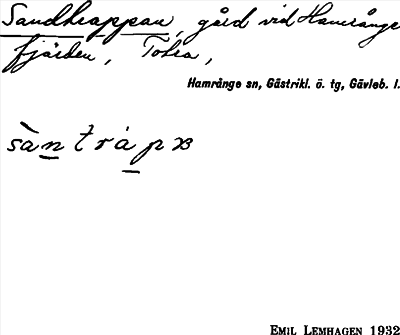 Sandtrappan, gård vid Hamrånge
fjärden, Totra,
Hamrånge sn, Gästrikl. ö. tg, Gävleb. l.
sàntrápæ
EMIL LEMHAGEN 1932